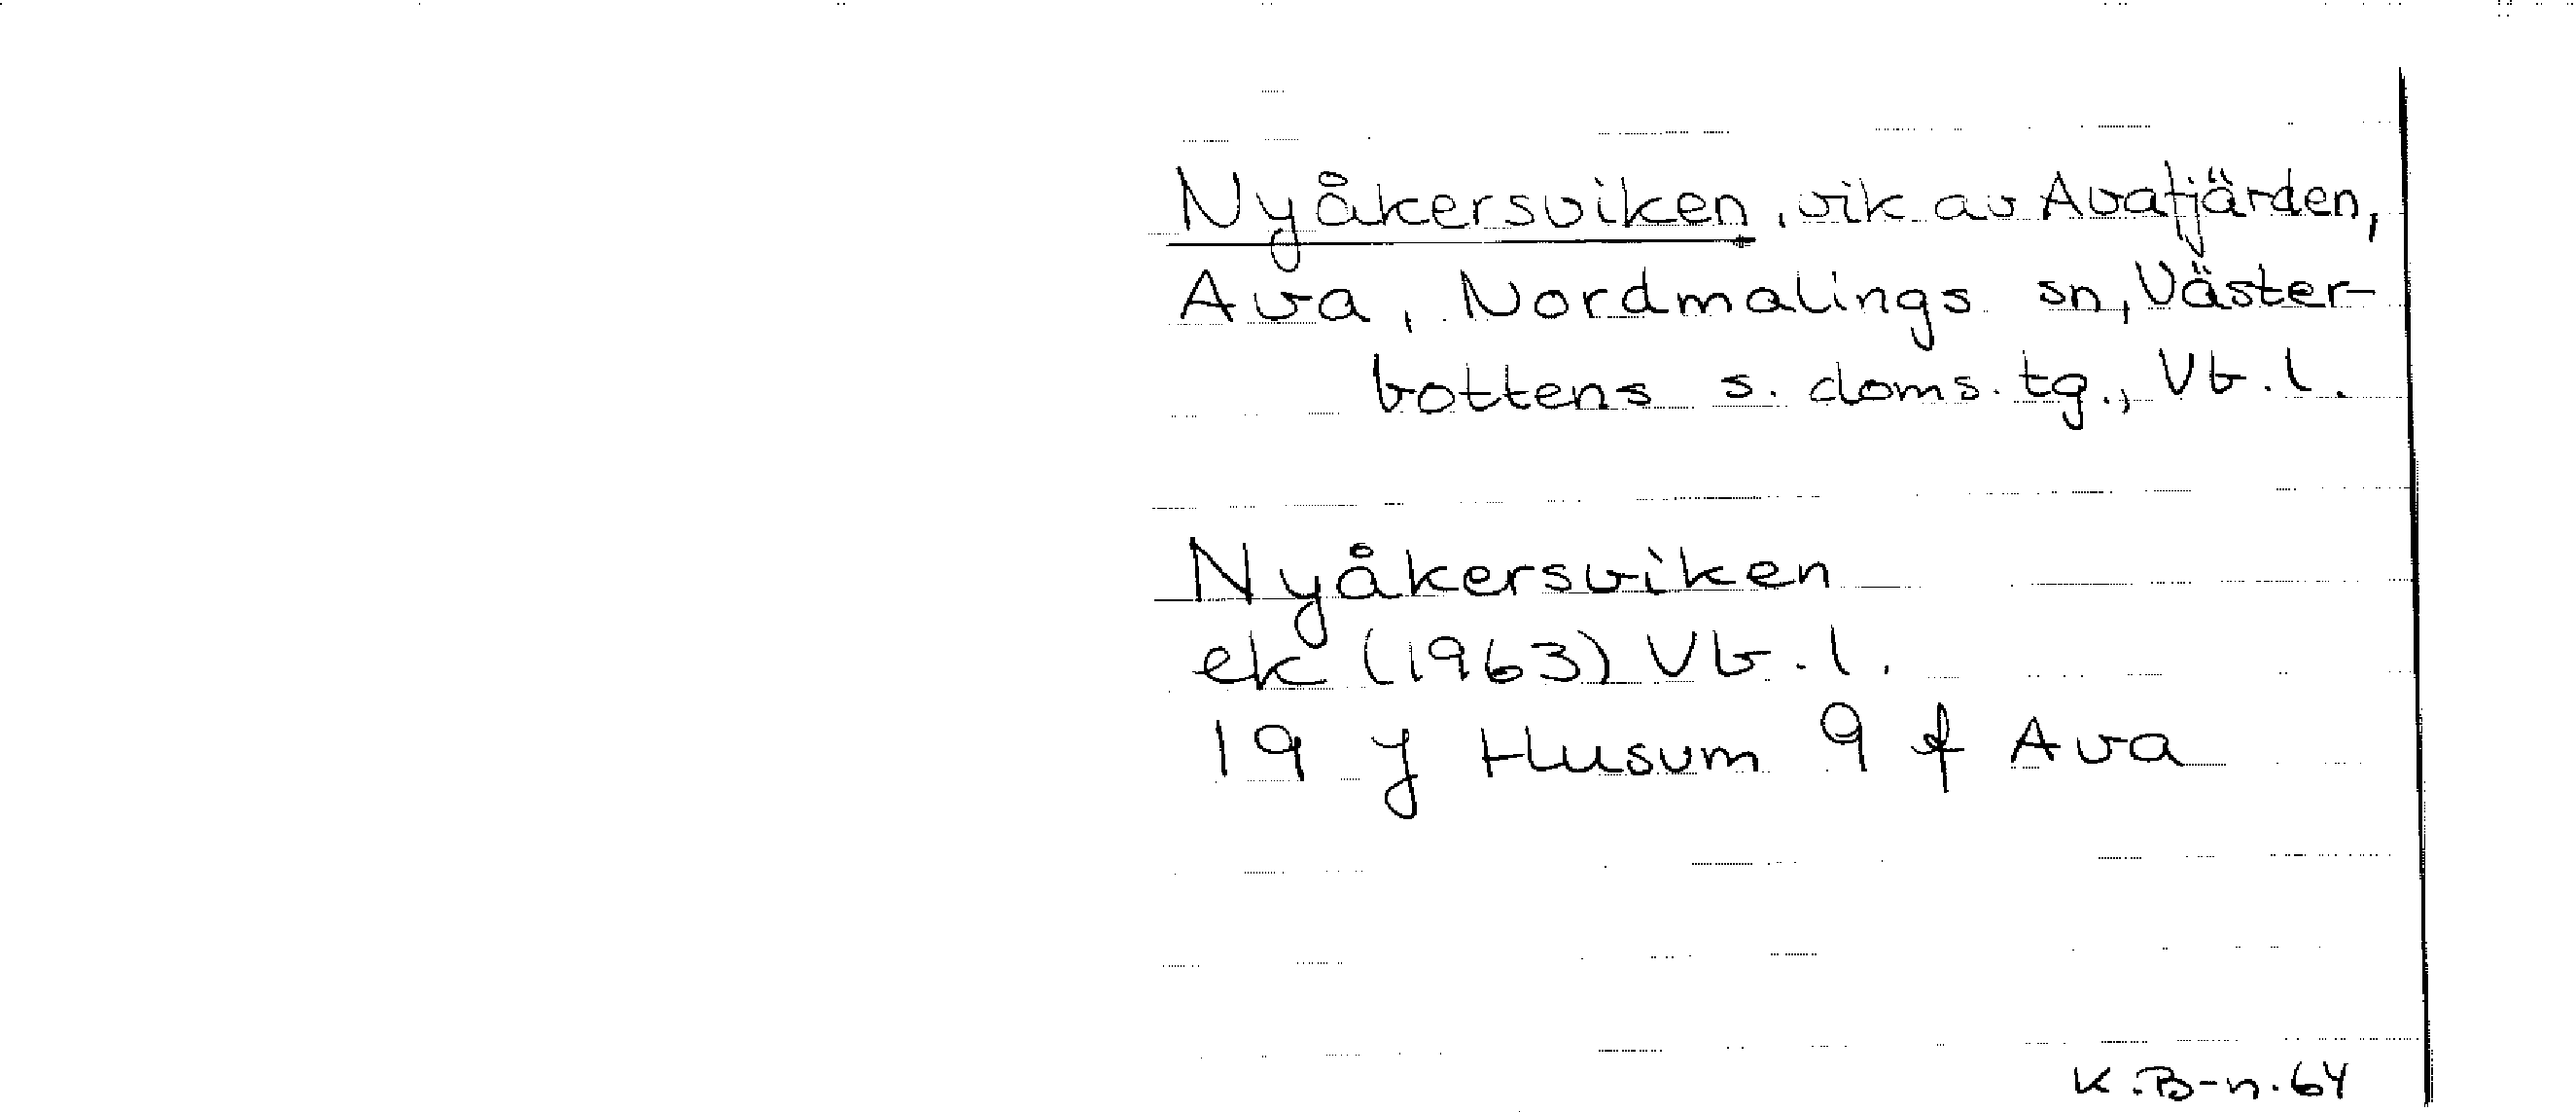 Nyåkersviken, vik av Avafjärden,
Ava, Nordmalings sn, Väster-
bottens s. doms. tg., Vb. l.
Nyåkersviken
ek (1963) Vb. l.
19 J Husum 9 f Ava
K. B-n. 64